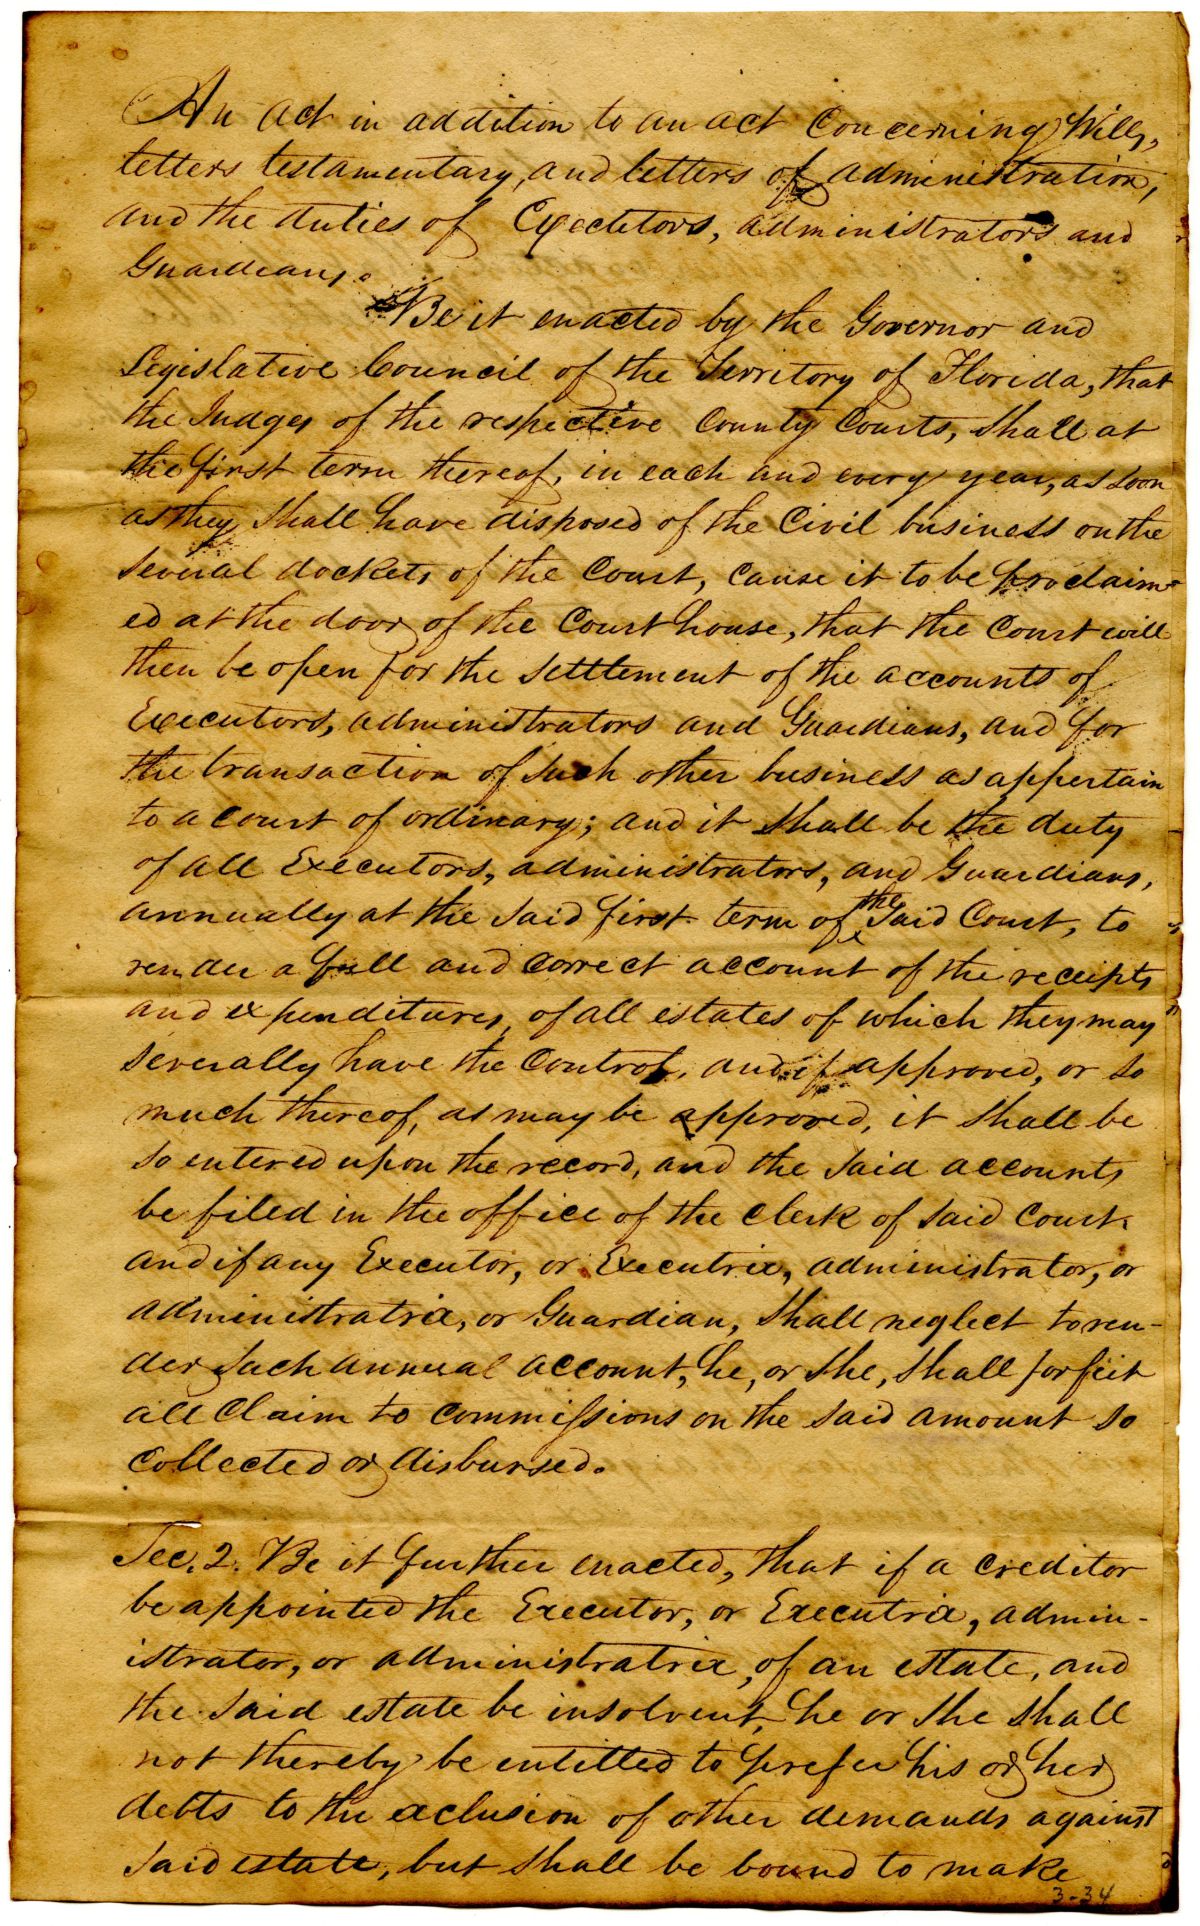 An act in addition to an act Concerning Wills,
letters testamentary, and letters of administration,
and the duties of Executors, administrators and
Guardians.
Be it enacted by the Governor and
Legislative Council of the Territory of Florida, that
the Judges of the respective County Courts, shall at
the first term thereof, in each and every year, as soon
as they shall have disposed of the Civil business on the
several dockets of the Court, cause it to be proclaim-
ed at the door of the Court house, that the Court will
then be open for the settlement of the accounts of
Executors, administrators and Guardians, and for
the transaction of such other business as appertain
to a court of ordinary; and it shall be the duty
of all Executors, administrators, and Guardians,
annually at the said first term of the said Court, to
render a full and correct account of the receipts
and expenditures, of all estates of which they may
severally have the Control, and if approved, or so
much thereof, as may be approved, it shall be
so entered upon the record, and the said accounts
be filed in the office of the clerk of said Court.
and if any Executor, or Executrix, administrator, or
administratrix, or Guardian, shall neglect to ren-
der such annual account, he, or she, shall forfeit
all Claim to commissions on the said amount so
collected or disbursed.
Sec. 2. Be it further enacted, that if a creditor
be appointed the Executor, or Executrix, admin-
istrator, or administratrix, of an estate, and
the said estate be insolvent, he or she shall
not thereby be entitled to prefer his or her
debts to the exclusion of other demands against
said estate, but shall be bound to make
3-34